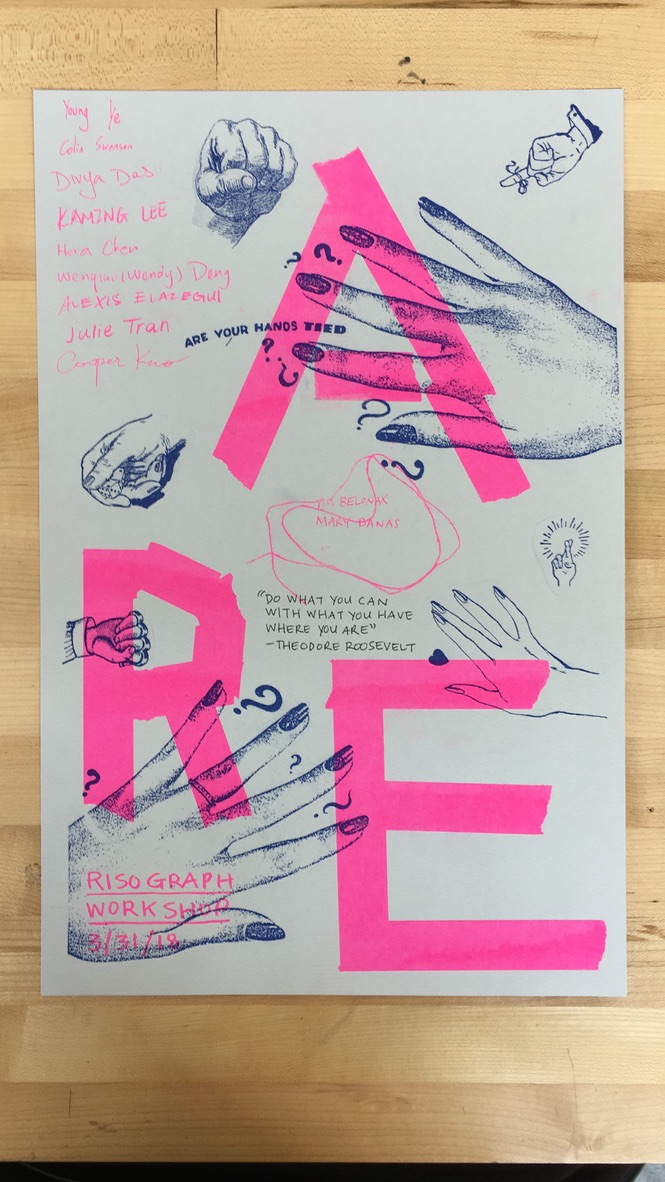 Young Ye
Colin Swenson
Divya Das
KAMING LEE
Hura Chen
Wenqiao (Wendy) Dong
ALEXIS ELAZEGUI
Julie Tran
Cooper
ARE YOUR HANDS TIED
? ?
? ?
?
?
BELONAX
MARY BANAS
"DO WHAT YOU CAN
WITH WHAT YOU HAVE
WHERE YOU ARE"
-THEODORE ROOSEVELT
?
? ?
?
A
R
E
RISOGRAPH
WORKSHOP
3/31/18